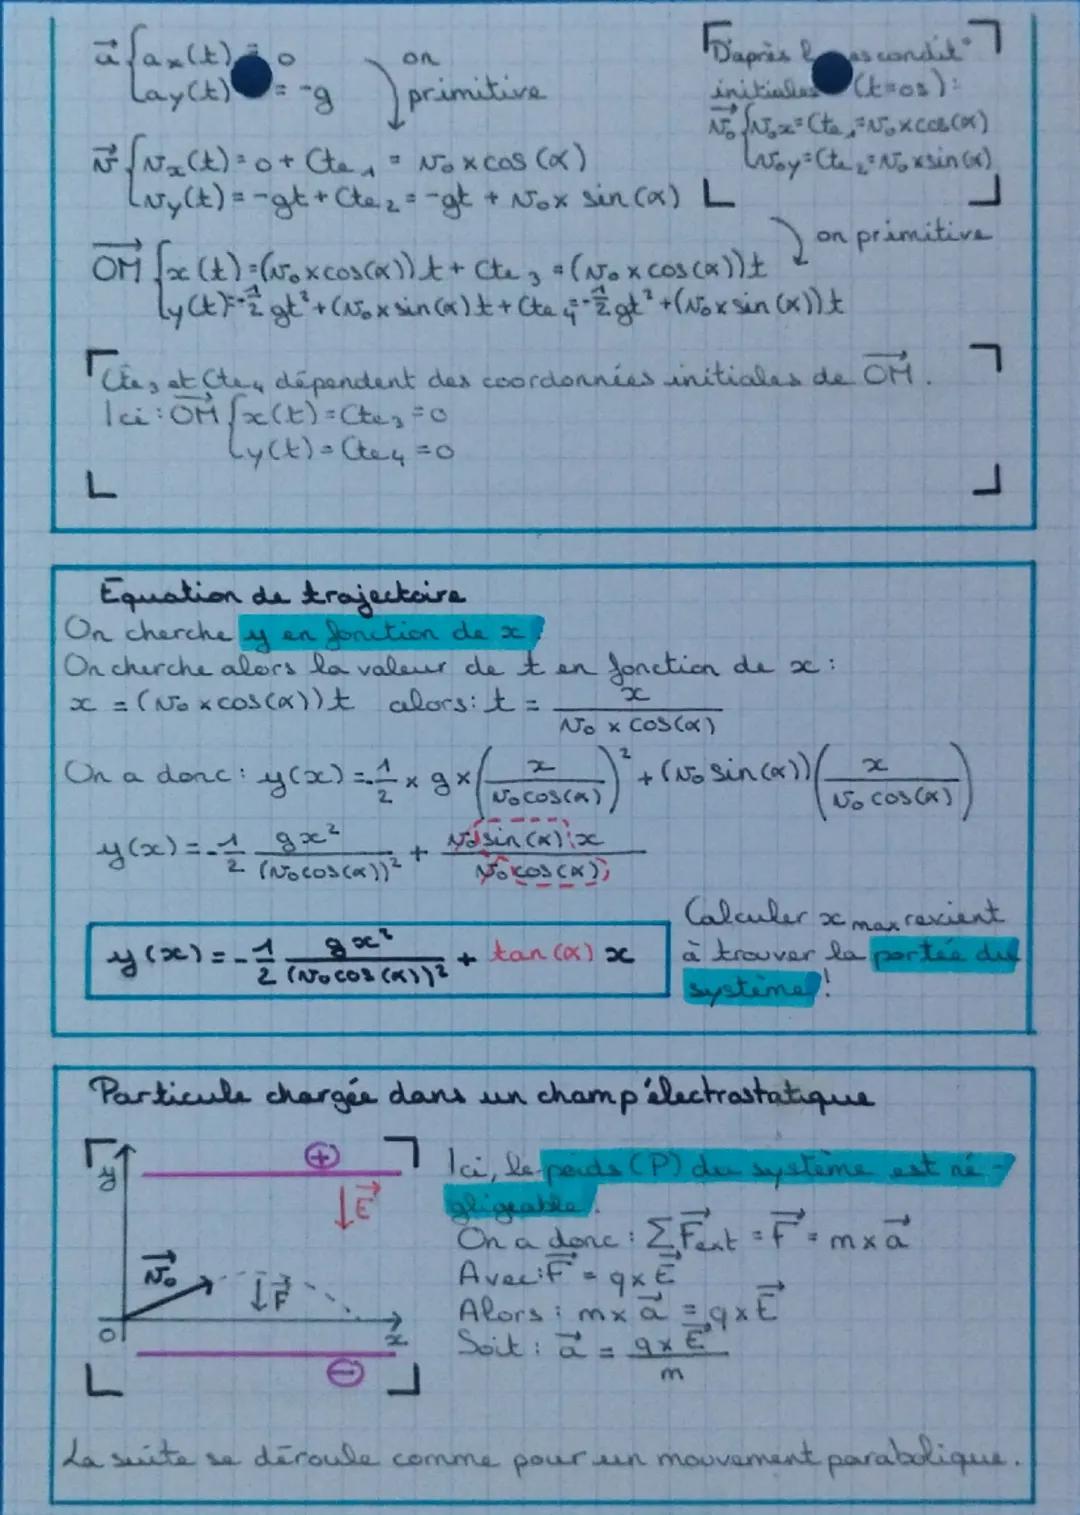 a⃗ { ax(t) = 0
ay(t) = -g
on
primitive
D'après les condit°
initiales (t=0s):
v⃗₀ { v₀x = Cte₁ = v₀ x cos(α)
v₀y = Cte₂ = v₀ x sin(α)
v⃗ { vx(t) = 0 + Cte₁ = v₀ x cos(α)
vy(t) = -gt + Cte₂ = -gt + v₀ x sin(α)
on primitive
OM⃗ { x(t) = (v₀ x cos(α))t + Cte₃ = (v₀ x cos(α))t
y(t) = -1/2 gt² + (v₀ x sin(α)t + Cte₄ = -1/2 gt² + (v₀ x sin(α))t
Cte₃ et Cte₄ dépendent des coordonnées initiales de OM⃗.
Ici : OM⃗ { x(t) = Cte₃ = 0
y(t) = Cte₄ = 0
Equation de trajectoire
On cherche y en fonction de x !
On cherche alors la valeur de t en fonction de x :
x = (v₀ x cos(α))t alors : t = x / (v₀ x cos(α))
On a donc : y(x) = -1/2 x g x (x / (v₀cos(α)))² + (v₀ sin(α)) (x / (v₀ cos(α)))
y(x) = -1/2 gx² / (v₀cos(α))² + v₀ sin(α) x / (v₀ cos(α))
y(x) = -1/2 gx² / (v₀cos(α))² + tan(α) x
Calculer x max revient
à trouver la portée du
système !
Particule chargée dans un champ électrostatique
+
y
E⃗
v⃗₀
F⃗
O
x
-
Ici, le poids (P) du système est né-
gligeable.
On a donc : ΣF⃗ext = F⃗ = m x a⃗
Avec : F⃗ = q x E⃗
Alors : m x a⃗ = q x E⃗
Soit : a⃗ = q x E⃗ / m
La suite se déroule comme pour un mouvement parabolique.